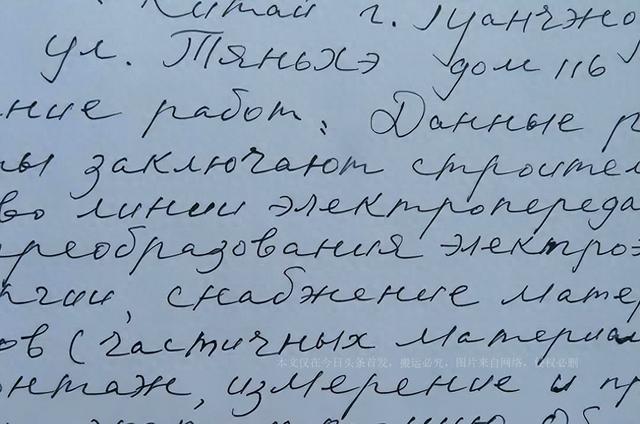 Китай г. Гуанчжо
ул. Тяньхэ дом 116
ние работ: Данные р
ты заключают строител
во линии электропереда
преобразования электроэ
ргии, снабжение матер
ов (частичных материал
本文仅在今日头条首发，搬运必究，图片来自网络，侵权必删
онтаж, измерение и пр